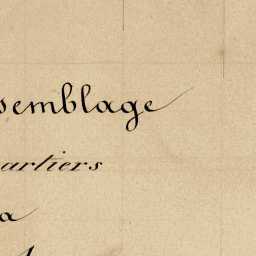 semblage
artiers
a